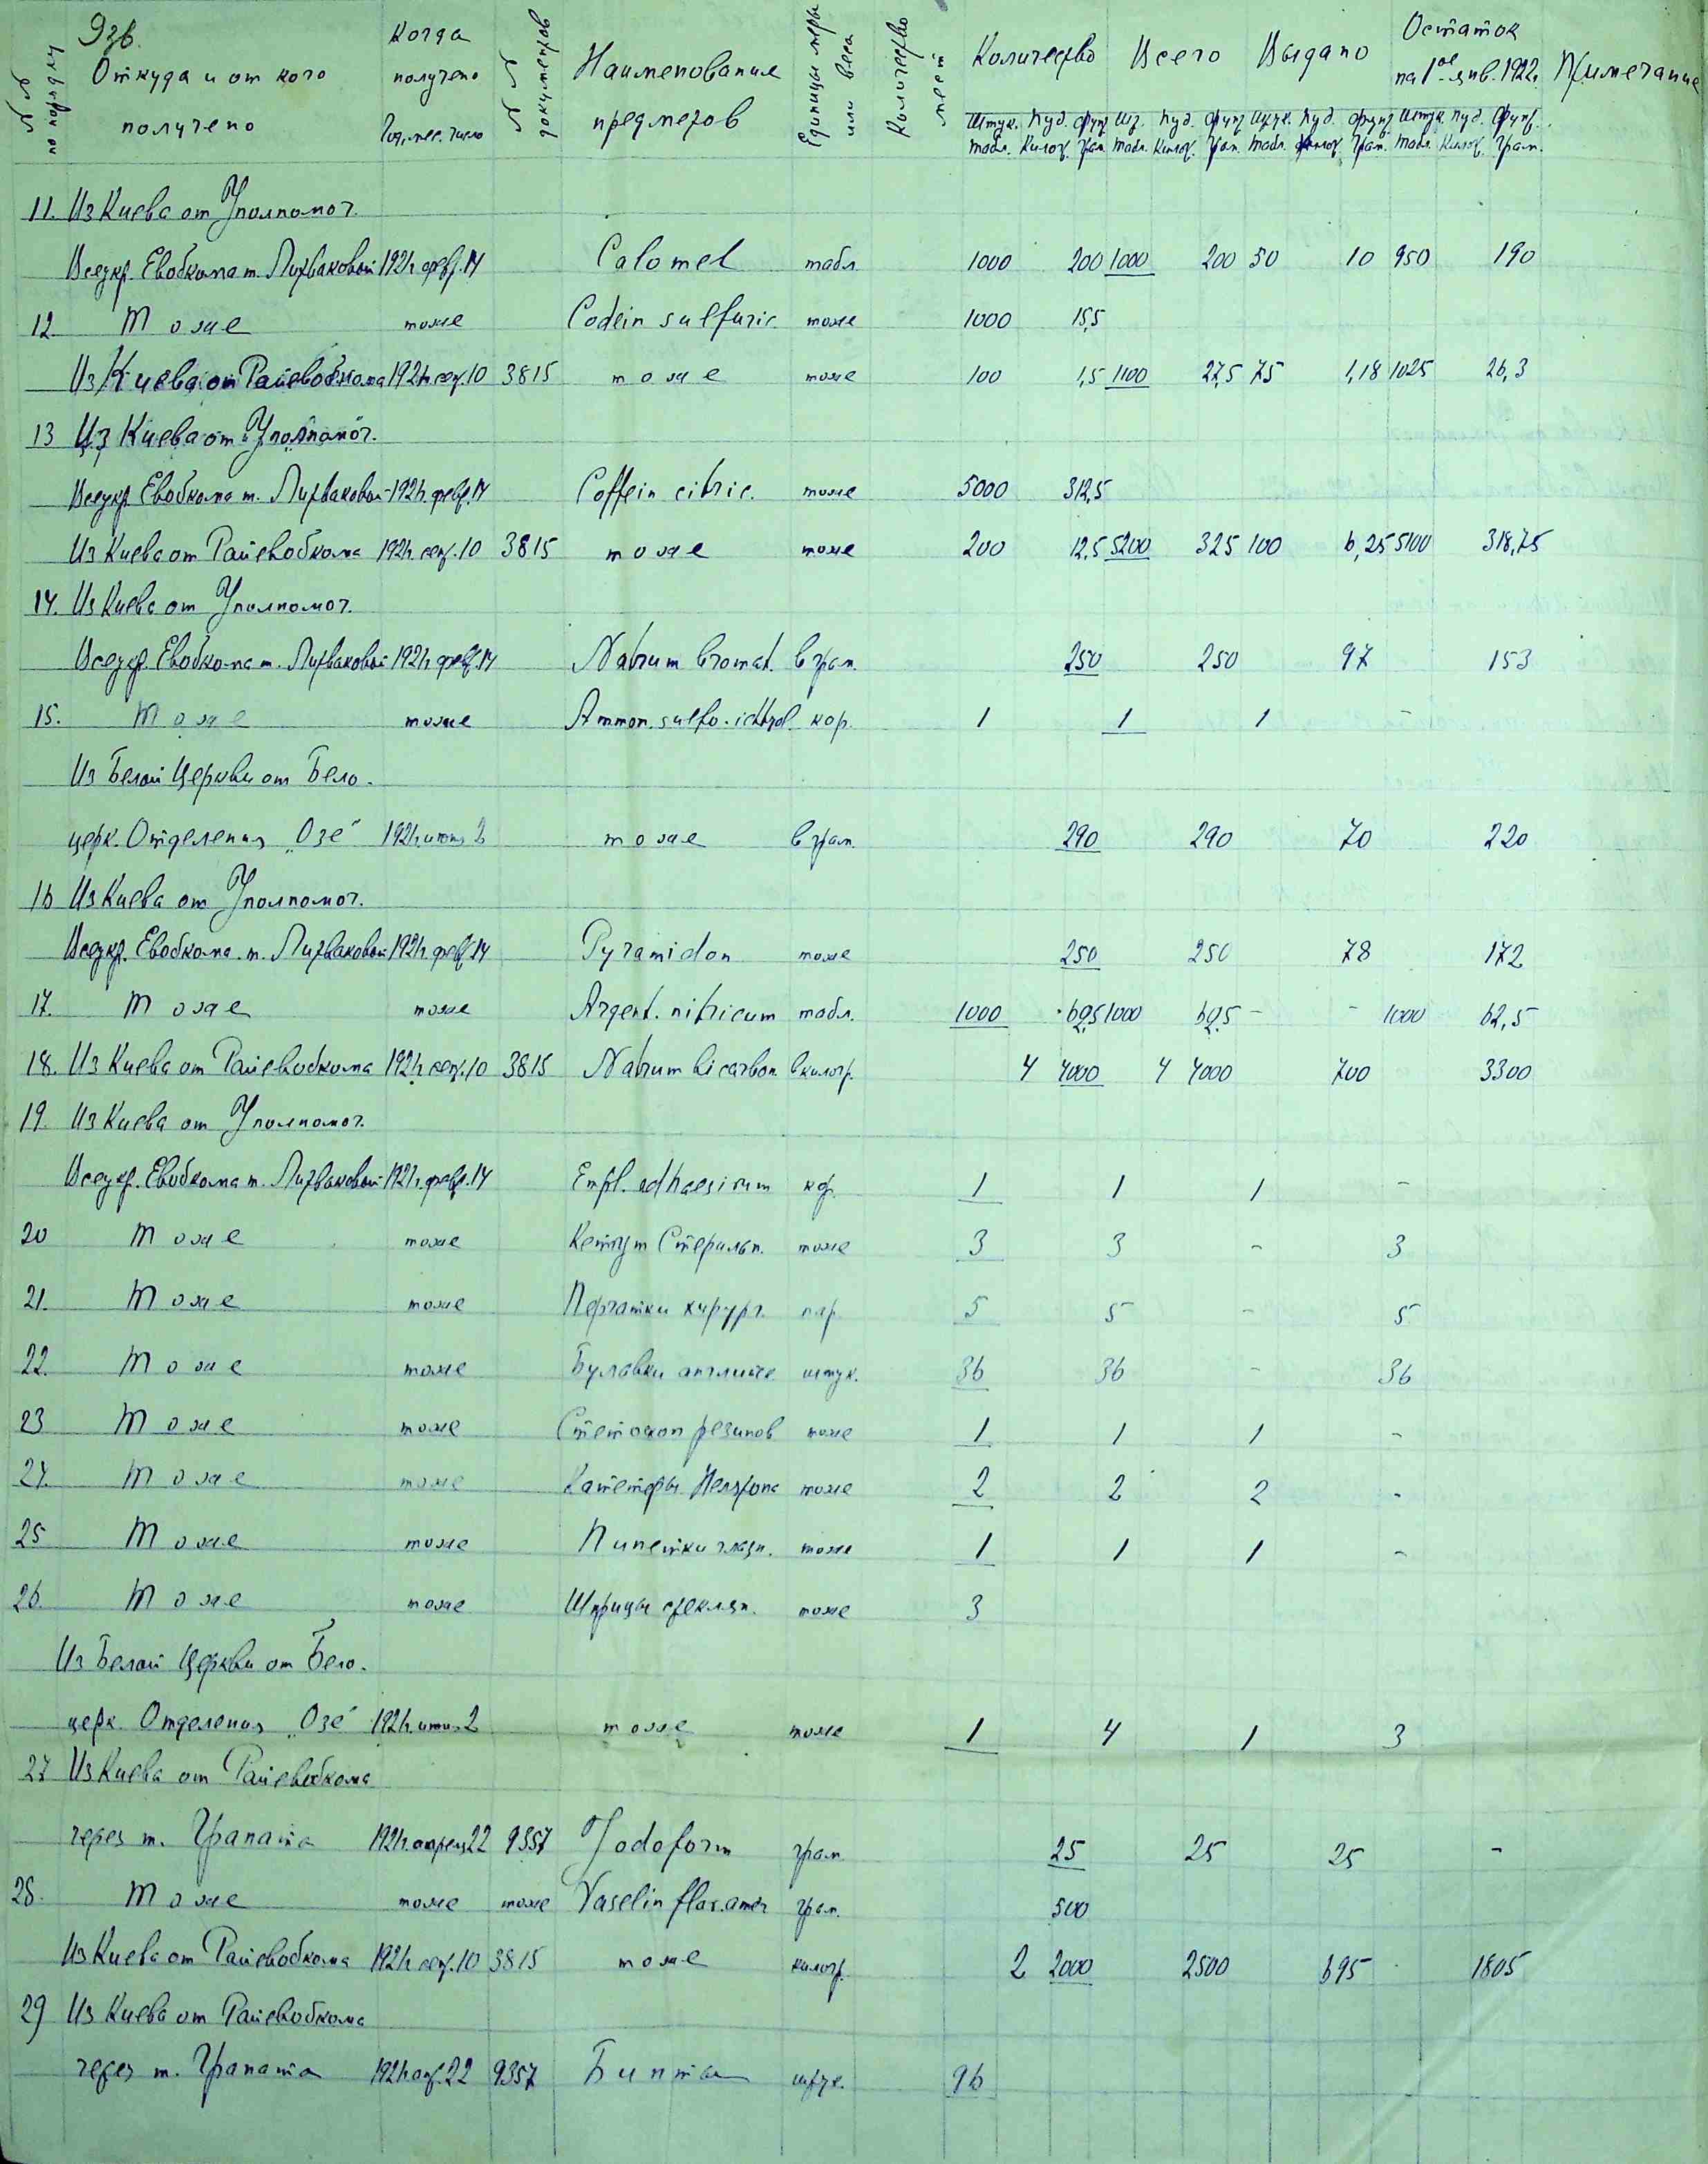 №№ по порядку Откуда и от кого получено Когда получено Год, мес. число №№ документов Наименование предметов Единицы меры или веса Количество мест Количество Всего Выдано Остаток на 1ое янв. 1922г. Примечание
Штук. Пуд. Фунт Шт. Пуд. Фунт Штук. Пуд. Фунт Штук Пуд. Фунт.
табл. Килог. Грам. табл. Килог. Грам. табл. Килог. Грам. табл. Килог. Грам.
11. Из Киева от Уполномоч.
Всеукр. Евобкома т. Литваковой 1921г. февр. 14 Calomel табл. 1000 200 1000 200 50 10 950 190
12 Тоже тоже Codein sulfuric. тоже 1000 15,5
Из Киева от Райевобкома 1921г. сен. 10 3815 тоже тоже 100 1,5 1100 27,5 75 1,18 1025 26,3
13 Из Киева от Уполномоч.
Всеукр. Евобкома т. Литваковой 1921г. февр. 14 Coffein citric. тоже 5000 312,5
Из Киева от Райевобкома 1921г. сен. 10 3815 тоже тоже 200 12,5 5200 325 100 6,25 5100 318,75
14. Из Киева от Уполномоч.
Всеукр. Евобкома т. Литваковой 1921г. февр. 14 Natrum bromat. в грам. 250 250 97 153
15. Тоже тоже Ammon. sulfo-ichtyol. кор. 1 1 1 -
Из Белой Церкви от Бело-
церк. Отделения „Озе" 1921г. июня 2 тоже в грам. 290 290 70 220
16 Из Киева от Уполномоч.
Всеукр. Евобкома т. Литваковой 1921г. февр. 14 Pyramidon тоже 250 250 78 172
17. Тоже тоже Argent. nitricum табл. 1000 62,5 1000 62,5 - - 1000 62,5
18. Из Киева от Райевобкома 1921г. сен. 10 3815 Natrum bicarbon. в килогр. 4 4000 4 4000 700 3300
19. Из Киева от Уполномоч.
Всеукр. Евобкома т. Литваковой 1921г. февр. 14 Empl. adhaesivum кор. 1 1 1 -
20 Тоже тоже Кетгут Стерильн. тоже 3 3 - 3
21. Тоже тоже Перчатки хирург. пар. 5 5 - 5
22. Тоже тоже Булавки английс. штук. 36 36 - 36
23 Тоже тоже Стетоскоп резинов тоже 1 1 1 -
24. Тоже тоже Катетеры Нелатона тоже 2 2 2 -
25 Тоже тоже Пипетки глазн. тоже 1 1 1 -
26. Тоже тоже Шприцы стеклян. тоже 3
Из Белой Церкви от Бело-
церк. Отделения „Озе" 1921г. июня 2 тоже тоже 1 4 1 3
27 Из Киева от Райевобкома
через т. Граната 1921г. апреля 22 9357 Jodoform грам. 25 25 25 -
28. Тоже тоже тоже Vaselin flav. amer. грам. 500
Из Киева от Райевобкома 1921г. сен. 10 3815 тоже килогр. 2 2000 2500 695 1805
29 Из Киева от Райевобкома
через т. Граната 1921г. апр. 22 9357 Бинты штук. 96